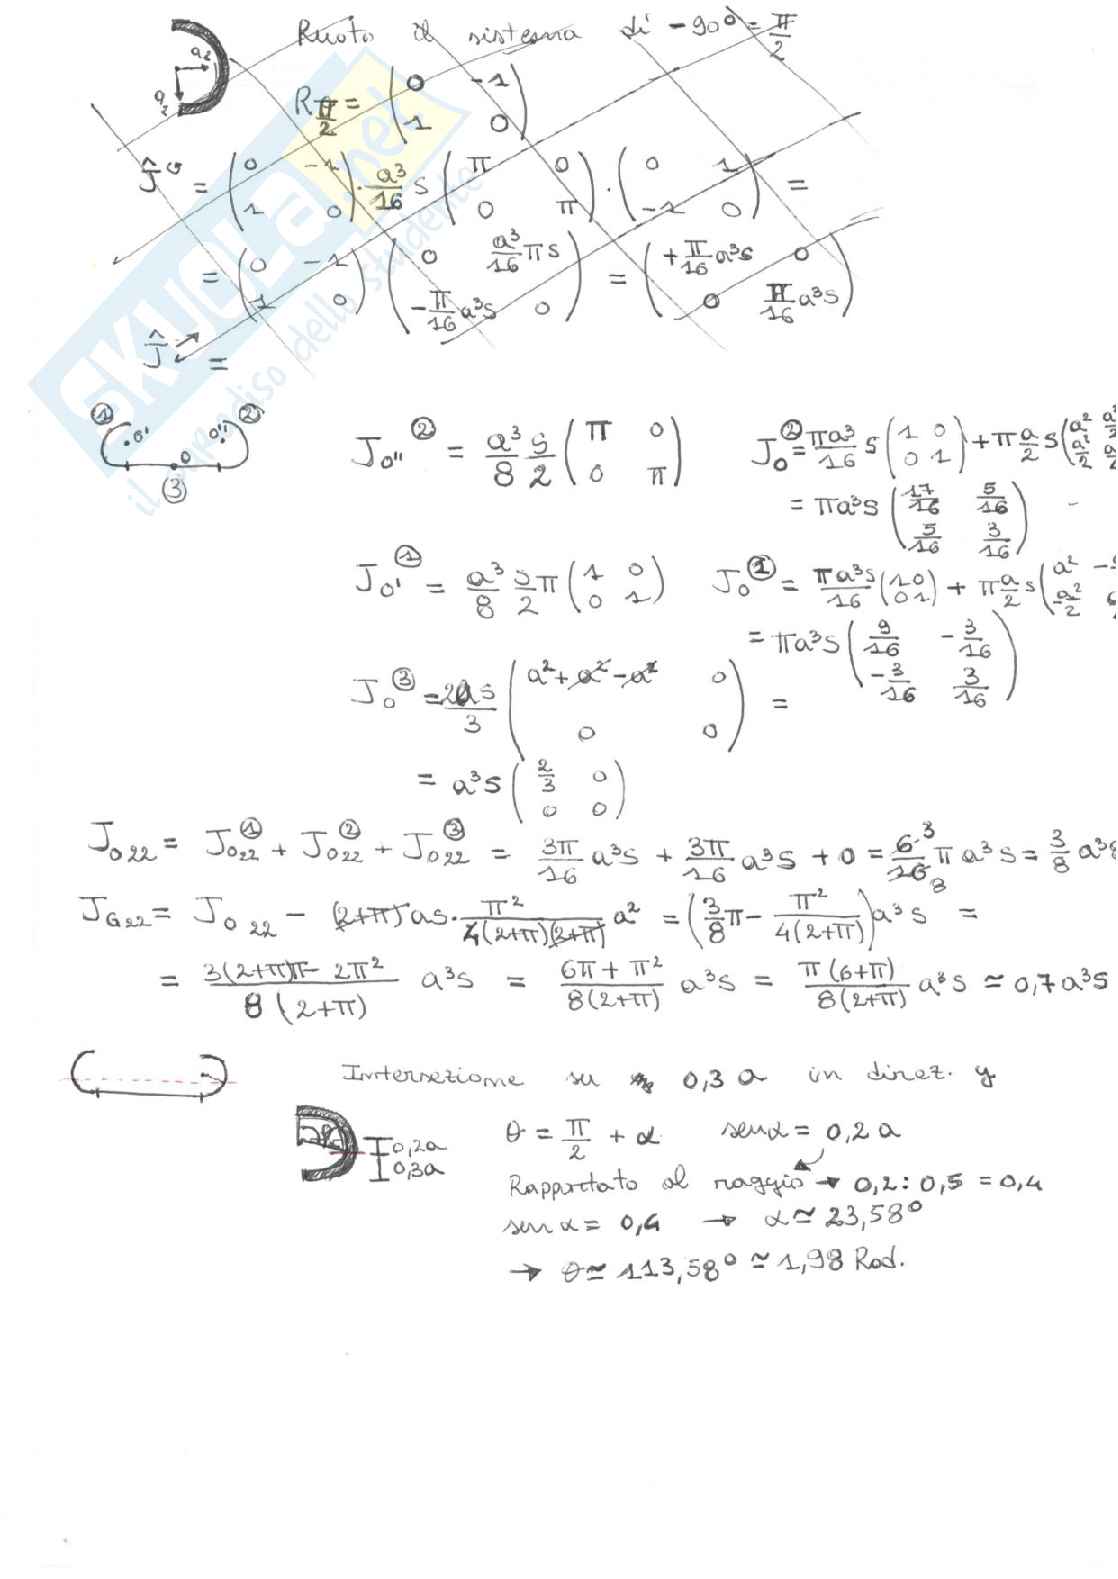 Ruoto il sistema di -90° = π/2
a₂
a₁
R_{π/2} = (0 -1; 1 0)
Ĵ^σ = (0 -1; 1 0) · a³/16 s (π 0; 0 π) · (0 1; -1 0) =
= (0 -1; 1 0) (0 a³/16 πs; -π/16 a³s 0) = (+π/16 a³s 0; 0 π/16 a³s)
Ĵ =
① O' O'' ② O ③
J_{O''}^② = a³/8 s/2 (π 0; 0 π) J_O^② = πa³/16 s (1 0; 0 1) + π a/2 s (a² a²/2; a²/2
= πa³s (17/16 5/16; 5/16 3/16)
J_{O'}^① = a³/8 s/2 π (1 0; 0 1) J_O^① = πa³s/16 (1 0; 0 1) + π a/2 s (a² -; -a²/2
= πa³s (9/16 -3/16; -3/16 3/16)
J_O^③ = 2as/3 (a² + a² - a² 0; 0 0) =
= a³s (2/3 0; 0 0)
J_{O22} = J_{O22}^① + J_{O22}^② + J_{O22}^③ = 3π/16 a³s + 3π/16 a³s + 0 = 6 3/16 8 π a³s = 3/8 a³s
J_{G22} = J_{O22} - (2+π) as · π²/4(2+π)(2+π) a² = (3/8 π - π²/4(2+π)) a³s =
= 3(2+π)π - 2π²/8(2+π) a³s = 6π + π²/8(2+π) a³s = π(6+π)/8(2+π) a³s ≃ 0,7a³s
Intersezione su 0,3 a in direz. y
0,2a
0,3a
θ = π/2 + α senα = 0,2 a
Rapportato al raggio → 0,2 : 0,5 = 0,4
sen α = 0,4 → α ≃ 23,58°
→ θ ≃ 113,58° ≃ 1,98 Rad.
SKUOLA.net
il paradiso dello studente